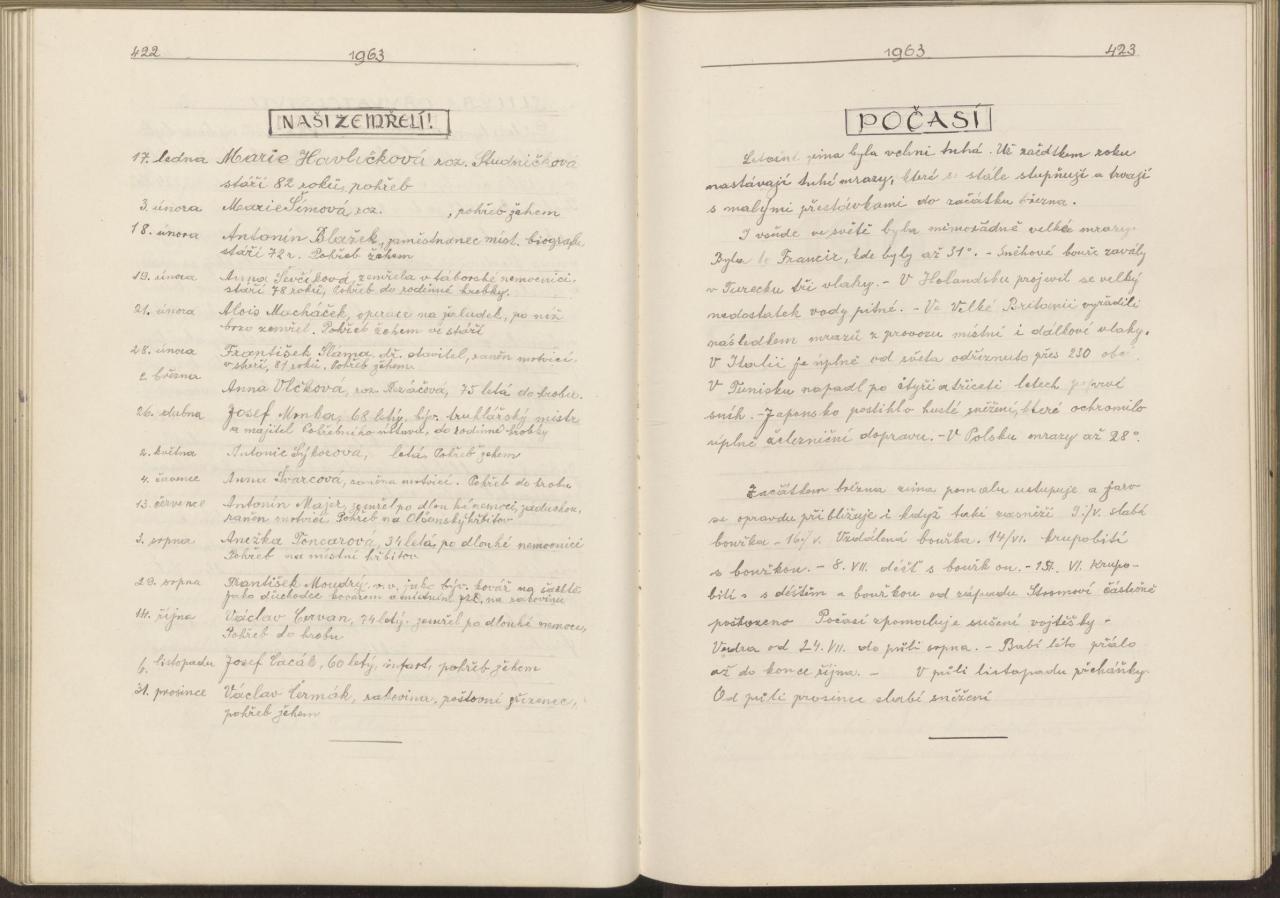 422
1963
NAŠI ZEMŘELÍ!
17. ledna Marie Havlíčková roz. Studničková
stáří 82 roků, pohřeb
3. února Marie Šímová roz. , pohřeb žehem
18. února Antonín Blažek, zaměstnanec míst. biografu
stáří 72 r. Pohřeb žehem
19. února Anna Ševčíková, zemřela v táborské nemocnici,
stáří 78 roků, Pohřeb do rodinné hrobky.
21. února Alois Macháček, operace na žaludek, po níž
brzo zemřel. Pohřeb žehem ve stáří
28. února František Sláma, stavitel, raněn mrtvicí
v stáří, 81 roků. Pohřeb žehem
2. března
Anna Vlčková, roz. 75 letá do hrobu.
26. dubna Josef 68 letý, býv. truhlářský mistr
a majitel Pohřebního ústavu, do rodinné hrobky
2. května Antonie Sýkorová, letá, Pohřeb žehem
4. července Anna Švarcová, raněna mrtvicí. Pohřeb do hrobu
13. červenec Antonín Majer, zemřel po dlouhé nemoci, zaduchou,
raněn mrtvicí Pohřeb na Olšanský hřbitov
3. srpna Anežka Poncarová, 34 letá, po dlouhé nemocnici
Pohřeb na místní hřbitov
29. srpna František Moudrý, býv. kovář na
jako důchodce kovářem na rakovinu
14. října Václav Červan, 74 letý. zemřel po dlouhé nemoci,
Pohřeb do hrobu
6. listopadu Josef Cacák, 60 letý, infart, pohřeb žehem
31. prosince Václav Čermák, rakovina, poštovní zřízenec,
pohřeb žehem
1963
423
POČASÍ
Letošní zima byla velmi tuhá. Už začátkem roku
nastávají tuhé mrazy, které se stále stupňují a trvají
s malými přestávkami do začátku března.
I všude ve světě byly mimořádně velké mrazy.
Bylo to Francii, kde byly až 31°. – Sněhové bouře zavály
v Turecku tři vlaky. – V Holandsku projevil se velký
nedostatek vody pitné. – Ve Velké Britanii vyřadili
následkem mrazů z provozu místní i dálkové vlaky.
V Italii je úplně od světa odříznuto přes 230 obcí.
V Tunisku napadl po čtyřiatřiceti letech poprvé
sníh. – Japonsko postihlo husté sněžení, které ochromilo
úplně železniční dopravu. – V Polsku mrazy až 28°.
Začátkem března zima pomalu ustupuje a jaro
se opravdu přibližuje i když také zasněží 9/V. slabá
bouřka – 16/V. Vzdálená bouřka. 14/VI. krupobití
s bouřkou. – 8. VII. déšť s bouřkou. – 15. VI. Krupo-
bití s deštěm a bouřkou od západu Stromoví částečně
poškozeno Počasí zpomaluje sušení vojtěšky –
Vedra od 24. VII. do půli srpna. – Babí léto přálo
až do konce října. – V půli listopadu přeháňky.
Od půli prosince slabé sněžení